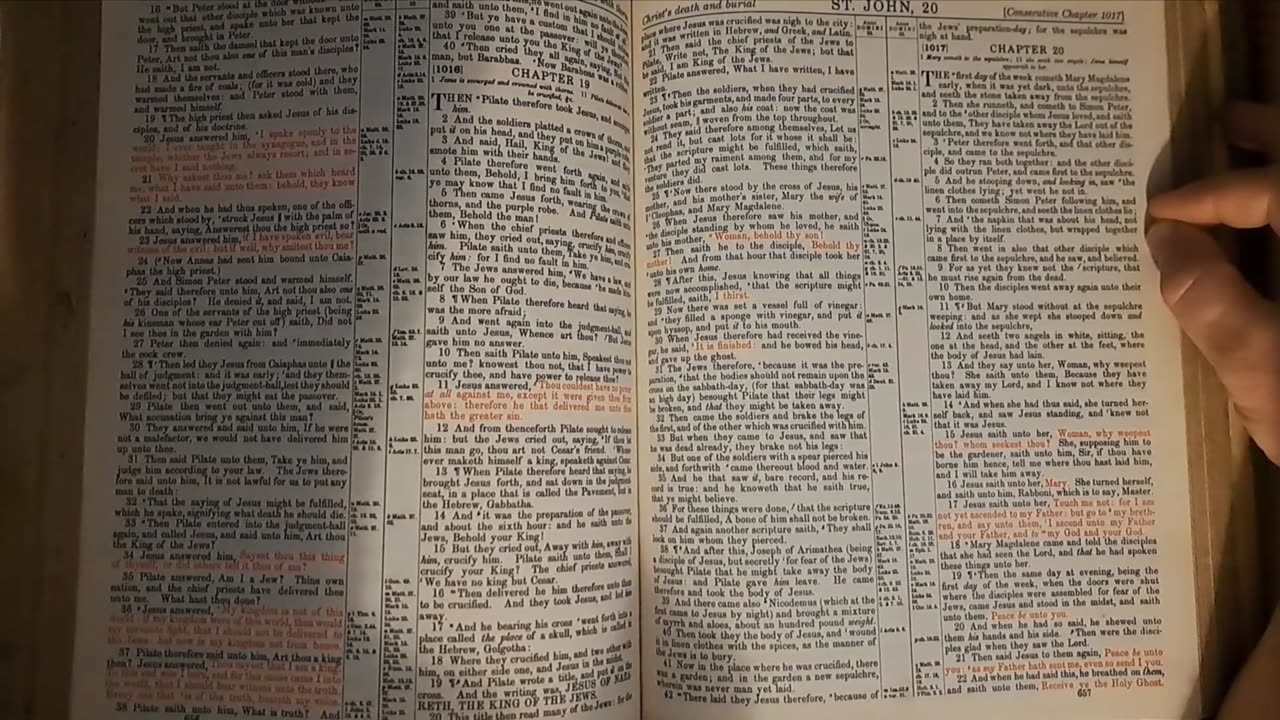 16 But Peter stood at the door
went out that other disciple which was known unto
the high priest, and spake unto her that kept the
door, and brought in Peter.
17 Then saith the damsel that kept the door unto
Peter, Art not thou also one of this man's disciples?
He saith, I am not.
18 And the servants and officers stood there, who
had made a fire of coals; (for it was cold) and they
warmed themselves: and Peter stood with them,
and warmed himself.
19 ¶ The high priest then asked Jesus of his dis-
ciples, and of his doctrine.
20 Jesus answered him, I spake openly to the
world: I ever taught in the synagogue, and in the
temple, whither the Jews always resort; and in se-
cret have I said nothing.
21 Why askest thou me? ask them which heard
me, what I have said unto them: behold, they know
what I said.
22 And when he had thus spoken, one of the offi-
cers which stood by, struck Jesus with the palm of
his hand, saying, Answerest thou the high priest so?
23 Jesus answered him, If I have spoken evil, bear
witness of the evil: but if well, why smitest thou me?
24 (Now Annas had sent him bound unto Caia-
phas the high priest.)
25 And Simon Peter stood and warmed himself.
They said therefore unto him, Art not thou also one
of his disciples? He denied it, and said, I am not.
26 One of the servants of the high priest (being
his kinsman whose ear Peter cut off) saith, Did not
I see thee in the garden with him?
27 Peter then denied again: and immediately
the cock crew.
28 ¶ Then led they Jesus from Caiaphas unto the
hall of judgment: and it was early; and they them-
selves went not into the judgment-hall, lest they should
be defiled; but that they might eat the passover.
29 Pilate then went out unto them, and said,
What accusation bring ye against this man?
30 They answered and said unto him, If he were
not a malefactor, we would not have delivered him
up unto thee.
31 Then said Pilate unto them, Take ye him, and
judge him according to your law. The Jews there-
fore said unto him, It is not lawful for us to put any
man to death:
32 That the saying of Jesus might be fulfilled,
which he spake, signifying what death he should die.
33 Then Pilate entered into the judgment-hall
again, and called Jesus, and said unto him, Art thou
the King of the Jews?
34 Jesus answered him, Sayest thou this thing
of thyself, or did others tell it thee of me?
35 Pilate answered, Am I a Jew? Thine own
nation, and the chief priests have delivered thee
unto me. What hast thou done?
36 Jesus answered, My kingdom is not of this
world: if my kingdom were of this world, then would
my servants fight, that I should not be delivered to
the Jews: but now is my kingdom not from hence.
37 Pilate therefore said unto him, Art thou a king
then? Jesus answered, Thou sayest that I am a king.
To this end was I born, and for this cause came I into
the world, that I should bear witness unto the truth.
Every one that is of the truth, heareth my voice.
38 Pilate saith unto him, What is truth? And
656
he went out again unto the
and saith unto them, I find in him no fault
39 But ye have a custom that I should
unto you one at the passover: will ye
that I release unto you the King of the Jews?
40 Then cried they all again, saying, Not
man, but Barabbas. Now Barabbas was a
[1016] CHAPTER 19
1 Jesus is scourged and crowned with thorns.
THEN Pilate therefore took Jesus, and scourged
him.
2 And the soldiers platted a crown of thorns, and
put it on his head, and they put on him a purple
3 And said, Hail, King of the Jews! and they
smote him with their hands.
4 Pilate therefore went forth again, and saith
unto them, Behold, I bring him forth to you, that
ye may know that I find no fault in him.
5 Then came Jesus forth, wearing the crown of
thorns, and the purple robe. And Pilate saith unto
them, Behold the man!
6 When the chief priests therefore and officers
saw him, they cried out, saying, crucify him, crucify
him. Pilate saith unto them, Take ye him, and cru-
cify him: for I find no fault in him.
7 The Jews answered him, We have a law, and
by our law he ought to die, because he made him-
self the Son of God.
8 ¶ When Pilate therefore heard that saying, he
was the more afraid;
9 And went again into the judgment-hall, and
saith unto Jesus, Whence art thou? But Jesus
gave him no answer.
10 Then saith Pilate unto him, Speakest thou not
unto me? knowest thou not, that I have power to
crucify thee, and have power to release thee?
11 Jesus answered, Thou couldest have no power
at all against me, except it were given thee from
above: therefore he that delivered me unto thee
hath the greater sin.
12 And from thenceforth Pilate sought to release
him: but the Jews cried out, saying, If thou let
this man go, thou art not Cesar's friend. Whoso-
ever maketh himself a king, speaketh against Cesar.
13 ¶ When Pilate therefore heard that saying, he
brought Jesus forth, and sat down in the judgment
seat, in a place that is called the Pavement, but in
the Hebrew, Gabbatha.
14 And it was the preparation of the passover,
and about the sixth hour: and he saith unto the
Jews, Behold your King!
15 But they cried out, Away with him, away with
him, crucify him. Pilate saith unto them, Shall I
crucify your King? The chief priests answered,
We have no king but Cesar.
16 Then delivered he him therefore unto them
to be crucified. And they took Jesus, and led him
away.
17 And he bearing his cross went forth into a
place called the place of a skull, which is called in
the Hebrew, Golgotha:
18 Where they crucified him, and two other with
him, on either side one, and Jesus in the midst.
19 ¶ And Pilate wrote a title, and put it on the
cross. And the writing was, JESUS OF NAZA-
RETH, THE KING OF THE JEWS.
20 This title then read many of the Jews: for the
Christ's death and burial
ST. JOHN, 20
[Consecutive Chapter 1017]
place where Jesus was crucified was nigh to the city:
and it was written in Hebrew, and Greek, and Latin.
21 Then said the chief priests of the Jews to
Pilate, Write not, The King of the Jews; but that
he said, I am King of the Jews.
22 Pilate answered, What I have written, I have
written.
23 ¶ Then the soldiers, when they had crucified
Jesus, took his garments, and made four parts, to every
soldier a part; and also his coat: now the coat was
without seam, woven from the top throughout.
24 They said therefore among themselves, Let us
not rend it, but cast lots for it whose it shall be:
that the scripture might be fulfilled, which saith,
They parted my raiment among them, and for my
vesture they did cast lots. These things therefore
the soldiers did.
25 Now there stood by the cross of Jesus, his
mother, and his mother's sister, Mary the wife of
Cleophas, and Mary Magdalene.
26 When Jesus therefore saw his mother, and
the disciple standing by whom he loved, he saith
unto his mother, Woman, behold thy son!
27 Then saith he to the disciple, Behold thy
mother! And from that hour that disciple took her
unto his own home.
28 ¶ After this, Jesus knowing that all things
were now accomplished, that the scripture might
be fulfilled, saith, I thirst.
29 Now there was set a vessel full of vinegar:
and they filled a sponge with vinegar, and put it
upon hyssop, and put it to his mouth.
30 When Jesus therefore had received the vine-
gar, he said, It is finished: and he bowed his head,
and gave up the ghost.
31 The Jews therefore, because it was the pre-
paration, that the bodies should not remain upon the
cross on the sabbath-day, (for that sabbath-day was
an high day) besought Pilate that their legs might
be broken, and that they might be taken away.
32 Then came the soldiers and brake the legs of
the first, and of the other which was crucified with him.
33 But when they came to Jesus, and saw that
he was dead already, they brake not his legs:
34 But one of the soldiers with a spear pierced his
side, and forthwith came thereout blood and water.
35 And he that saw it, bare record, and his re-
cord is true: and he knoweth that he saith true,
that ye might believe.
36 For these things were done, that the scripture
should be fulfilled, A bone of him shall not be broken.
37 And again another scripture saith, They shall
look on him whom they pierced.
38 ¶ And after this, Joseph of Arimathea (being
a disciple of Jesus, but secretly for fear of the Jews)
besought Pilate that he might take away the body
of Jesus: and Pilate gave him leave. He came
therefore and took the body of Jesus.
39 And there came also Nicodemus (which at the
first came to Jesus by night) and brought a mixture
of myrrh and aloes, about an hundred pound weight.
40 Then took they the body of Jesus, and wound
it in linen clothes with the spices, as the manner of
the Jews is to bury.
41 Now in the place where he was crucified, there
was a garden; and in the garden a new sepulchre,
wherein was never man yet laid.
42 There laid they Jesus therefore, because of
the Jews' preparation-day; for the sepulchre was
nigh at hand.
[1017] CHAPTER 20
1 Mary cometh to the sepulchre; 11 she seeth two angels: Jesus himself
appeareth to her.
THE first day of the week cometh Mary Magdalene
early, when it was yet dark, unto the sepulchre,
and seeth the stone taken away from the sepulchre.
2 Then she runneth, and cometh to Simon Peter,
and to the other disciple whom Jesus loved, and saith
unto them, They have taken away the Lord out of the
sepulchre, and we know not where they have laid him.
3 Peter therefore went forth, and that other dis-
ciple, and came to the sepulchre.
4 So they ran both together: and the other disci-
ple did outrun Peter, and came first to the sepulchre.
5 And he stooping down, and looking in, saw the
linen clothes lying; yet went he not in.
6 Then cometh Simon Peter following him, and
went into the sepulchre, and seeth the linen clothes lie
7 And the napkin that was about his head, not
lying with the linen clothes, but wrapped together
in a place by itself.
8 Then went in also that other disciple which
came first to the sepulchre, and he saw, and believed.
9 For as yet they knew not the scripture, that
he must rise again from the dead.
10 Then the disciples went away again unto their
own home.
11 ¶ But Mary stood without at the sepulchre
weeping: and as she wept she stooped down and
looked into the sepulchre,
12 And seeth two angels in white, sitting, the
one at the head, and the other at the feet, where
the body of Jesus had lain.
13 And they say unto her, Woman, why weepest
thou? She saith unto them, Because they have
taken away my Lord, and I know not where they
have laid him.
14 And when she had thus said, she turned her-
self back, and saw Jesus standing, and knew not
that it was Jesus.
15 Jesus saith unto her, Woman, why weepest
thou? whom seekest thou? She, supposing him to
be the gardener, saith unto him, Sir, if thou have
borne him hence, tell me where thou hast laid him,
and I will take him away.
16 Jesus saith unto her, Mary. She turned herself,
and saith unto him, Rabboni, which is to say, Master.
17 Jesus saith unto her, Touch me not: for I am
not yet ascended to my Father: but go to my breth-
ren, and say unto them, I ascend unto my Father
and your Father, and to my God and your God
18 Mary Magdalene came and told the disciples
that she had seen the Lord, and that he had spoken
these things unto her.
19 ¶ Then the same day at evening, being the
first day of the week, when the doors were shut
where the disciples were assembled for fear of the
Jews, came Jesus and stood in the midst, and saith
unto them, Peace be unto you.
20 And when he had so said, he shewed unto
them his hands and his side. Then were the disci-
ples glad when they saw the Lord.
21 Then said Jesus to them again, Peace be unto
you: as my Father hath sent me, even so send I you.
22 And when he had said this, he breathed on them,
and saith unto them, Receive ye the Holy Ghost.
657